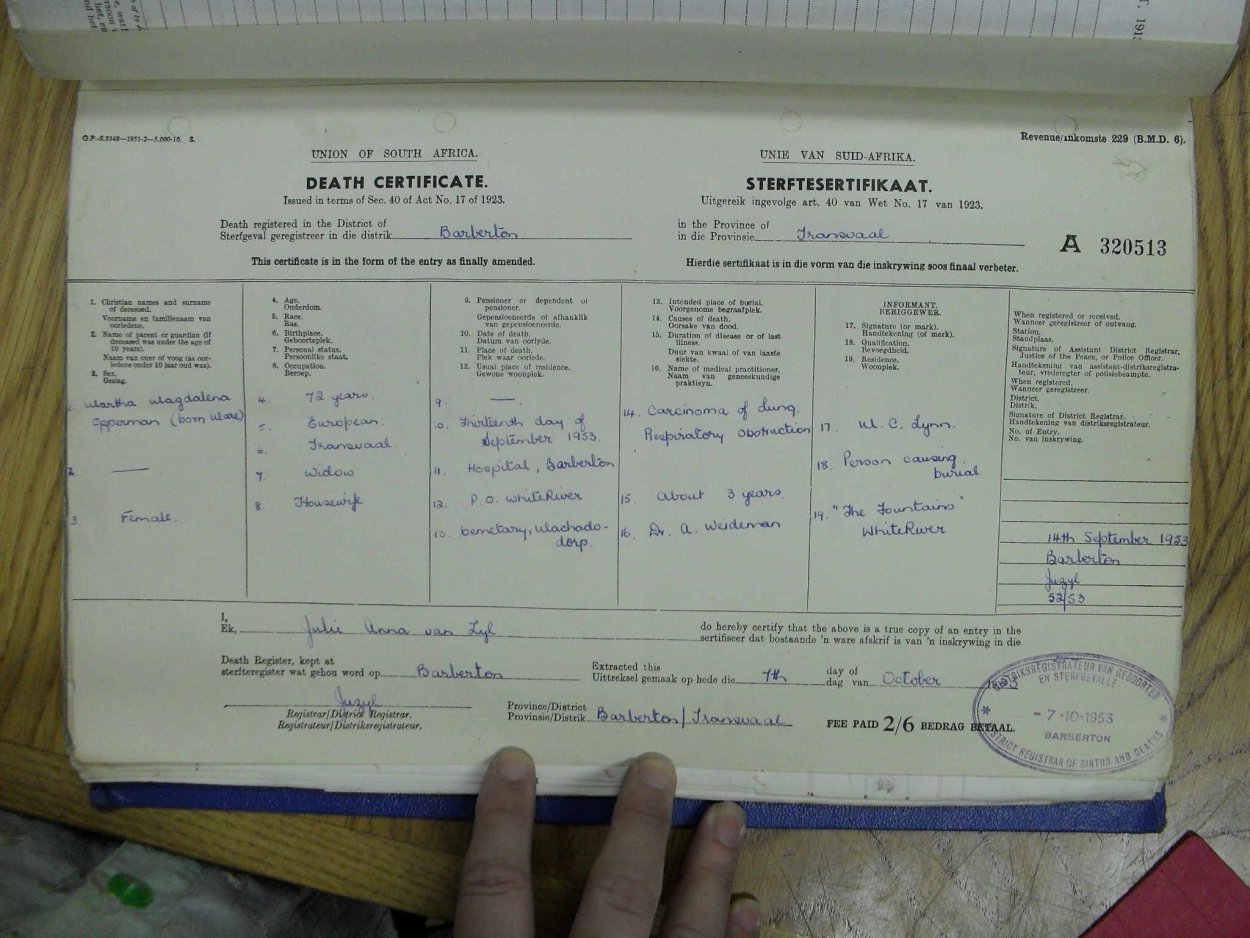 G.P.-S.9348—1951-2—5,000-10. S.
Revenue/Inkomste 229 (B.M.D. 6).
UNION OF SOUTH AFRICA.
DEATH CERTIFICATE.
Issued in terms of Sec. 40 of Act No. 17 of 1923.
UNIE VAN SUID-AFRIKA.
STERFTESERTIFIKAAT.
Uitgereik ingevolge art. 40 van Wet No. 17 van 1923.
Death registered in the District of
Sterfgeval geregistreer in die distrik Barberton
in the Province of
in die Provinsie Transvaal
A 320513
This certificate is in the form of the entry as finally amended.
Hierdie sertifikaat is in die vorm van die inskrywing soos finaal verbeter.
1. Christian names and surname
of deceased.
Voorname en familienaam van
oorledene.
2. Name of parent or guardian (if
deceased was under the age of
10 years).
Naam van ouer of voog (as oor-
ledene onder 10 jaar oud was).
3. Sex.
Geslag.
4. Age.
Ouderdom.
5. Race.
Ras.
6. Birthplace.
Geboorteplek.
7. Personal status.
Persoonlike staat.
8. Occupation.
Beroep.
9. Pensioner or dependent of
pensioner.
Gepensioeneerde of afhanklik
van gepensioeneerde.
10. Date of death.
Datum van oorlyde.
11. Place of death.
Plek waar oorlede.
12. Usual place of residence.
Gewone woonplek.
13. Intended place of burial.
Voorgenome begraafplek.
14. Causes of death.
Oorsake van dood.
15. Duration of disease or of last
illness.
Duur van kwaal of van laaste
siekte.
16. Name of medical practitioner.
Naam van geneeskundige
praktisyn.
INFORMANT.
BERIGGEWER.
17. Signature (or mark).
Handtekening (of merk).
18. Qualification.
Bevoegdheid.
19. Residence.
Woonplek.
When registered or received.
Wanneer geregistreer of ontvang.
Station.
Standplaas.
Signature of Assistant District Registrar,
Justice of the Peace, or Police Officer.
Handtekening van assistent-distriksregistra-
teur, vrederegter of polisiebeampte.
When registered.
Wanneer geregistreer.
District.
Distrik.
Signature of District Registrar.
Handtekening van distriksregistrateur.
No. of Entry.
No. van Inskrywing.
1. Martha Magdalena
Opperman (born Mare)
2. —
3. Female.
4. 72 years.
5. European.
6. Transvaal.
7. Widow
8. Housewife
9. —
10. Thirteenth day of
September 1953.
11. Hospital, Barberton
12. P.O. White River
13. Cemetary, Machado-
dorp.
14. Carcinoma of Lung.
Respiratory Obstruction
15. About 3 years.
16. Dr. A. Weideman
17. M. C. Lynn.
18. Person causing
burial
19. "The Fountains"
White River
14th September 1953
Barberton
Juzyl
52/53
I,
Ek, Julie Anna van Zyl
do hereby certify that the above is a true copy of an entry in the
sertifiseer dat bostaande 'n ware afskrif is van 'n inskrywing in die
Death Register, kept at
sterfteregister wat gehou word op Barberton
Extracted this
Uittreksel gemaak op hede die 7th
day of
dag van October
Juzyl
Registrar/District Registrar.
Registrateur/Distriksregistrateur.
Province/District
Provinsie/Distrik Barberton/Transvaal
FEE PAID 2/6 BEDRAG BETAAL.
DISTRIKSREGISTRATEUR VAN GEBOORTES
EN STERFGEVALLE
- 7 · 10 · 1953
BARBERTON
DISTRICT REGISTRAR OF BIRTHS AND DEATHS